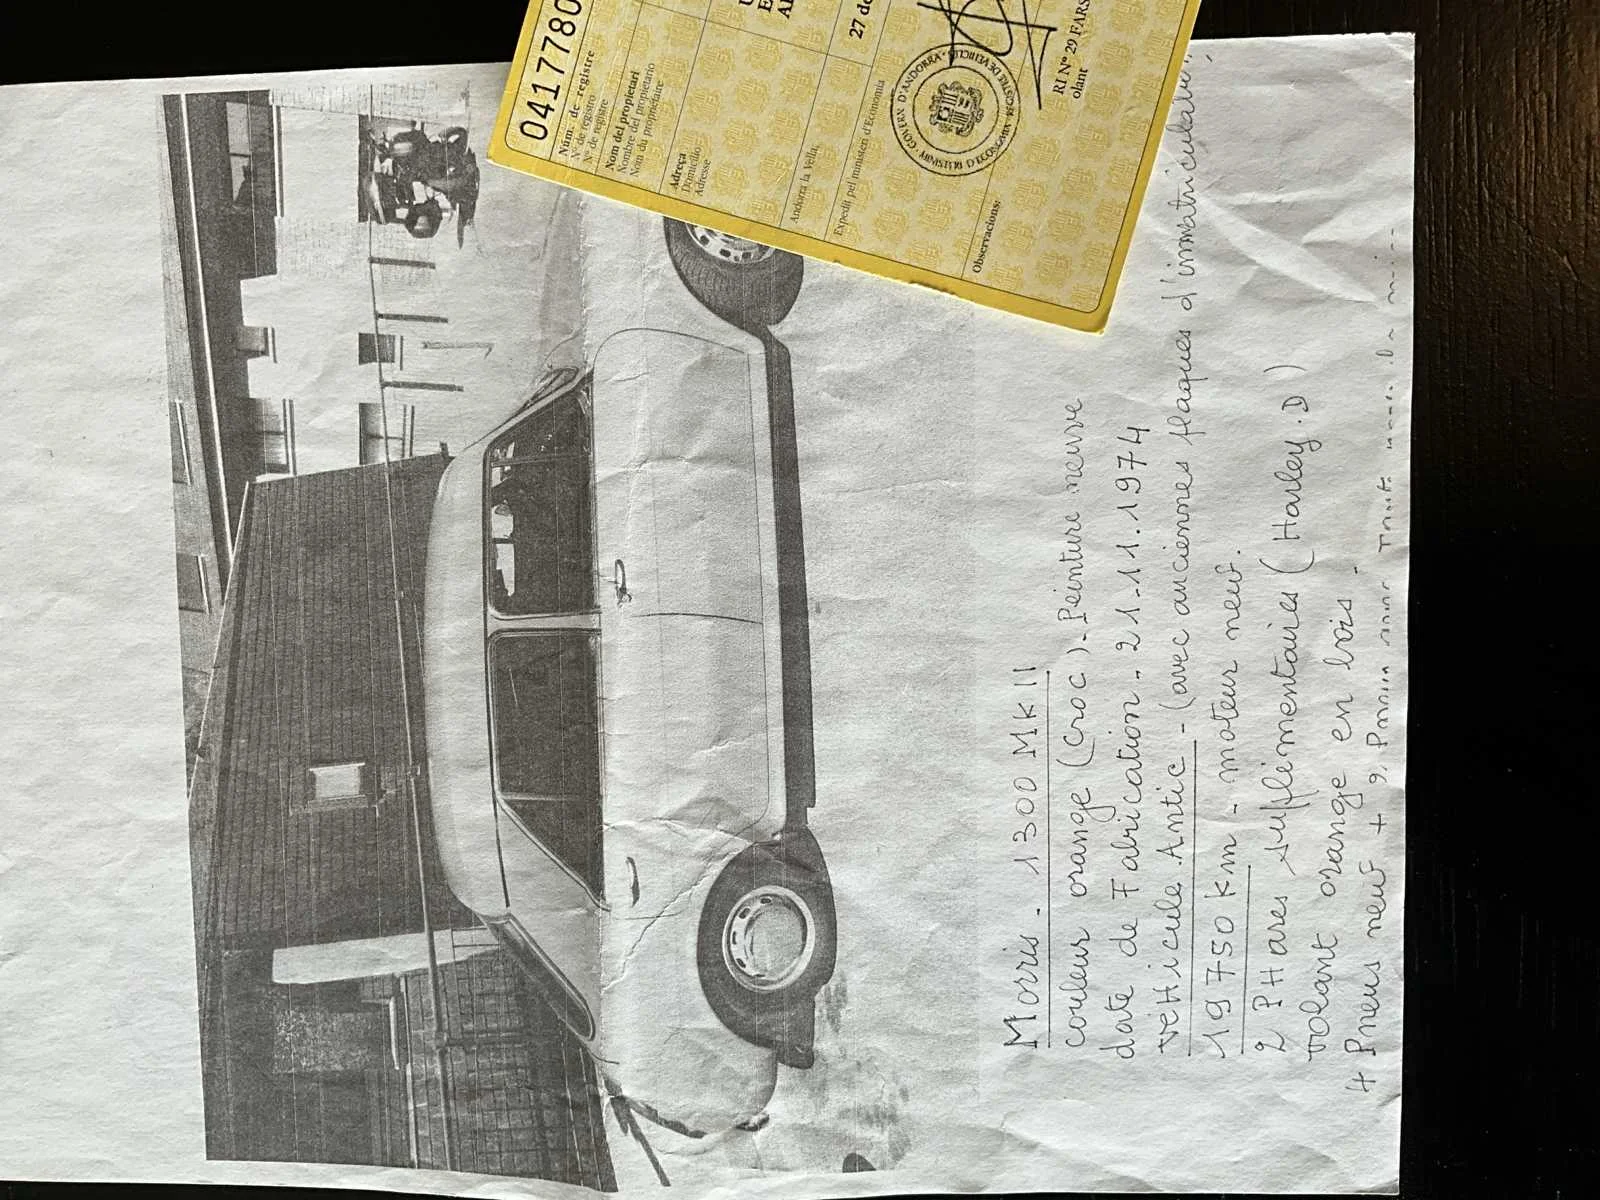 0417780
Núm. de registre
Nº de registro
Nº de registre
Nom del propietari
Nombre del propietario
Nom du propriétaire
Adreça
Domicilio
Adresse
Andorra la Vella,
27 de
Expedit pel ministeri d'Economia
GOVERN D'ANDORRA · REGISTRE DE VEHICLES · MINISTERI D'ECONOMIA
RI Nº 29 FARS
olant
Observacions:
Morris - 1300 MK II
couleur orange (Croc). Peinture neuve
date de Fabrication - 21.11.1974
veHicule Antic - (avec anciennes plaques d'immatriculation
19750 km - moteur neuf.
2 PHares supplémentaires (Harley.D)
volant orange en bois.
4 Pneus neuf +